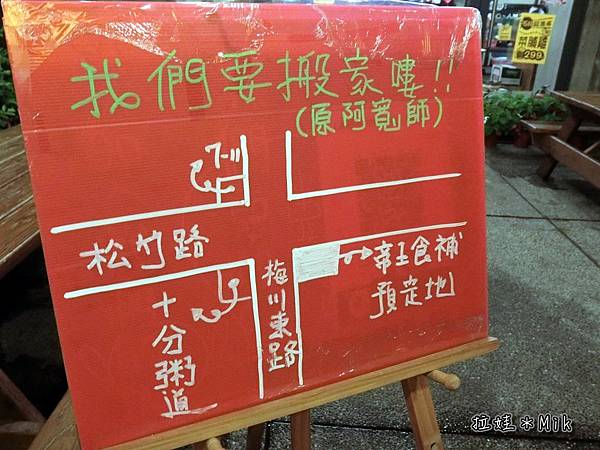 我們要搬家嘍!!
(原阿寬師)
7-11
松竹路
梅川東路
帝王食補
預定地
十分粥道
菜脯雞
299
拉娃*Mik